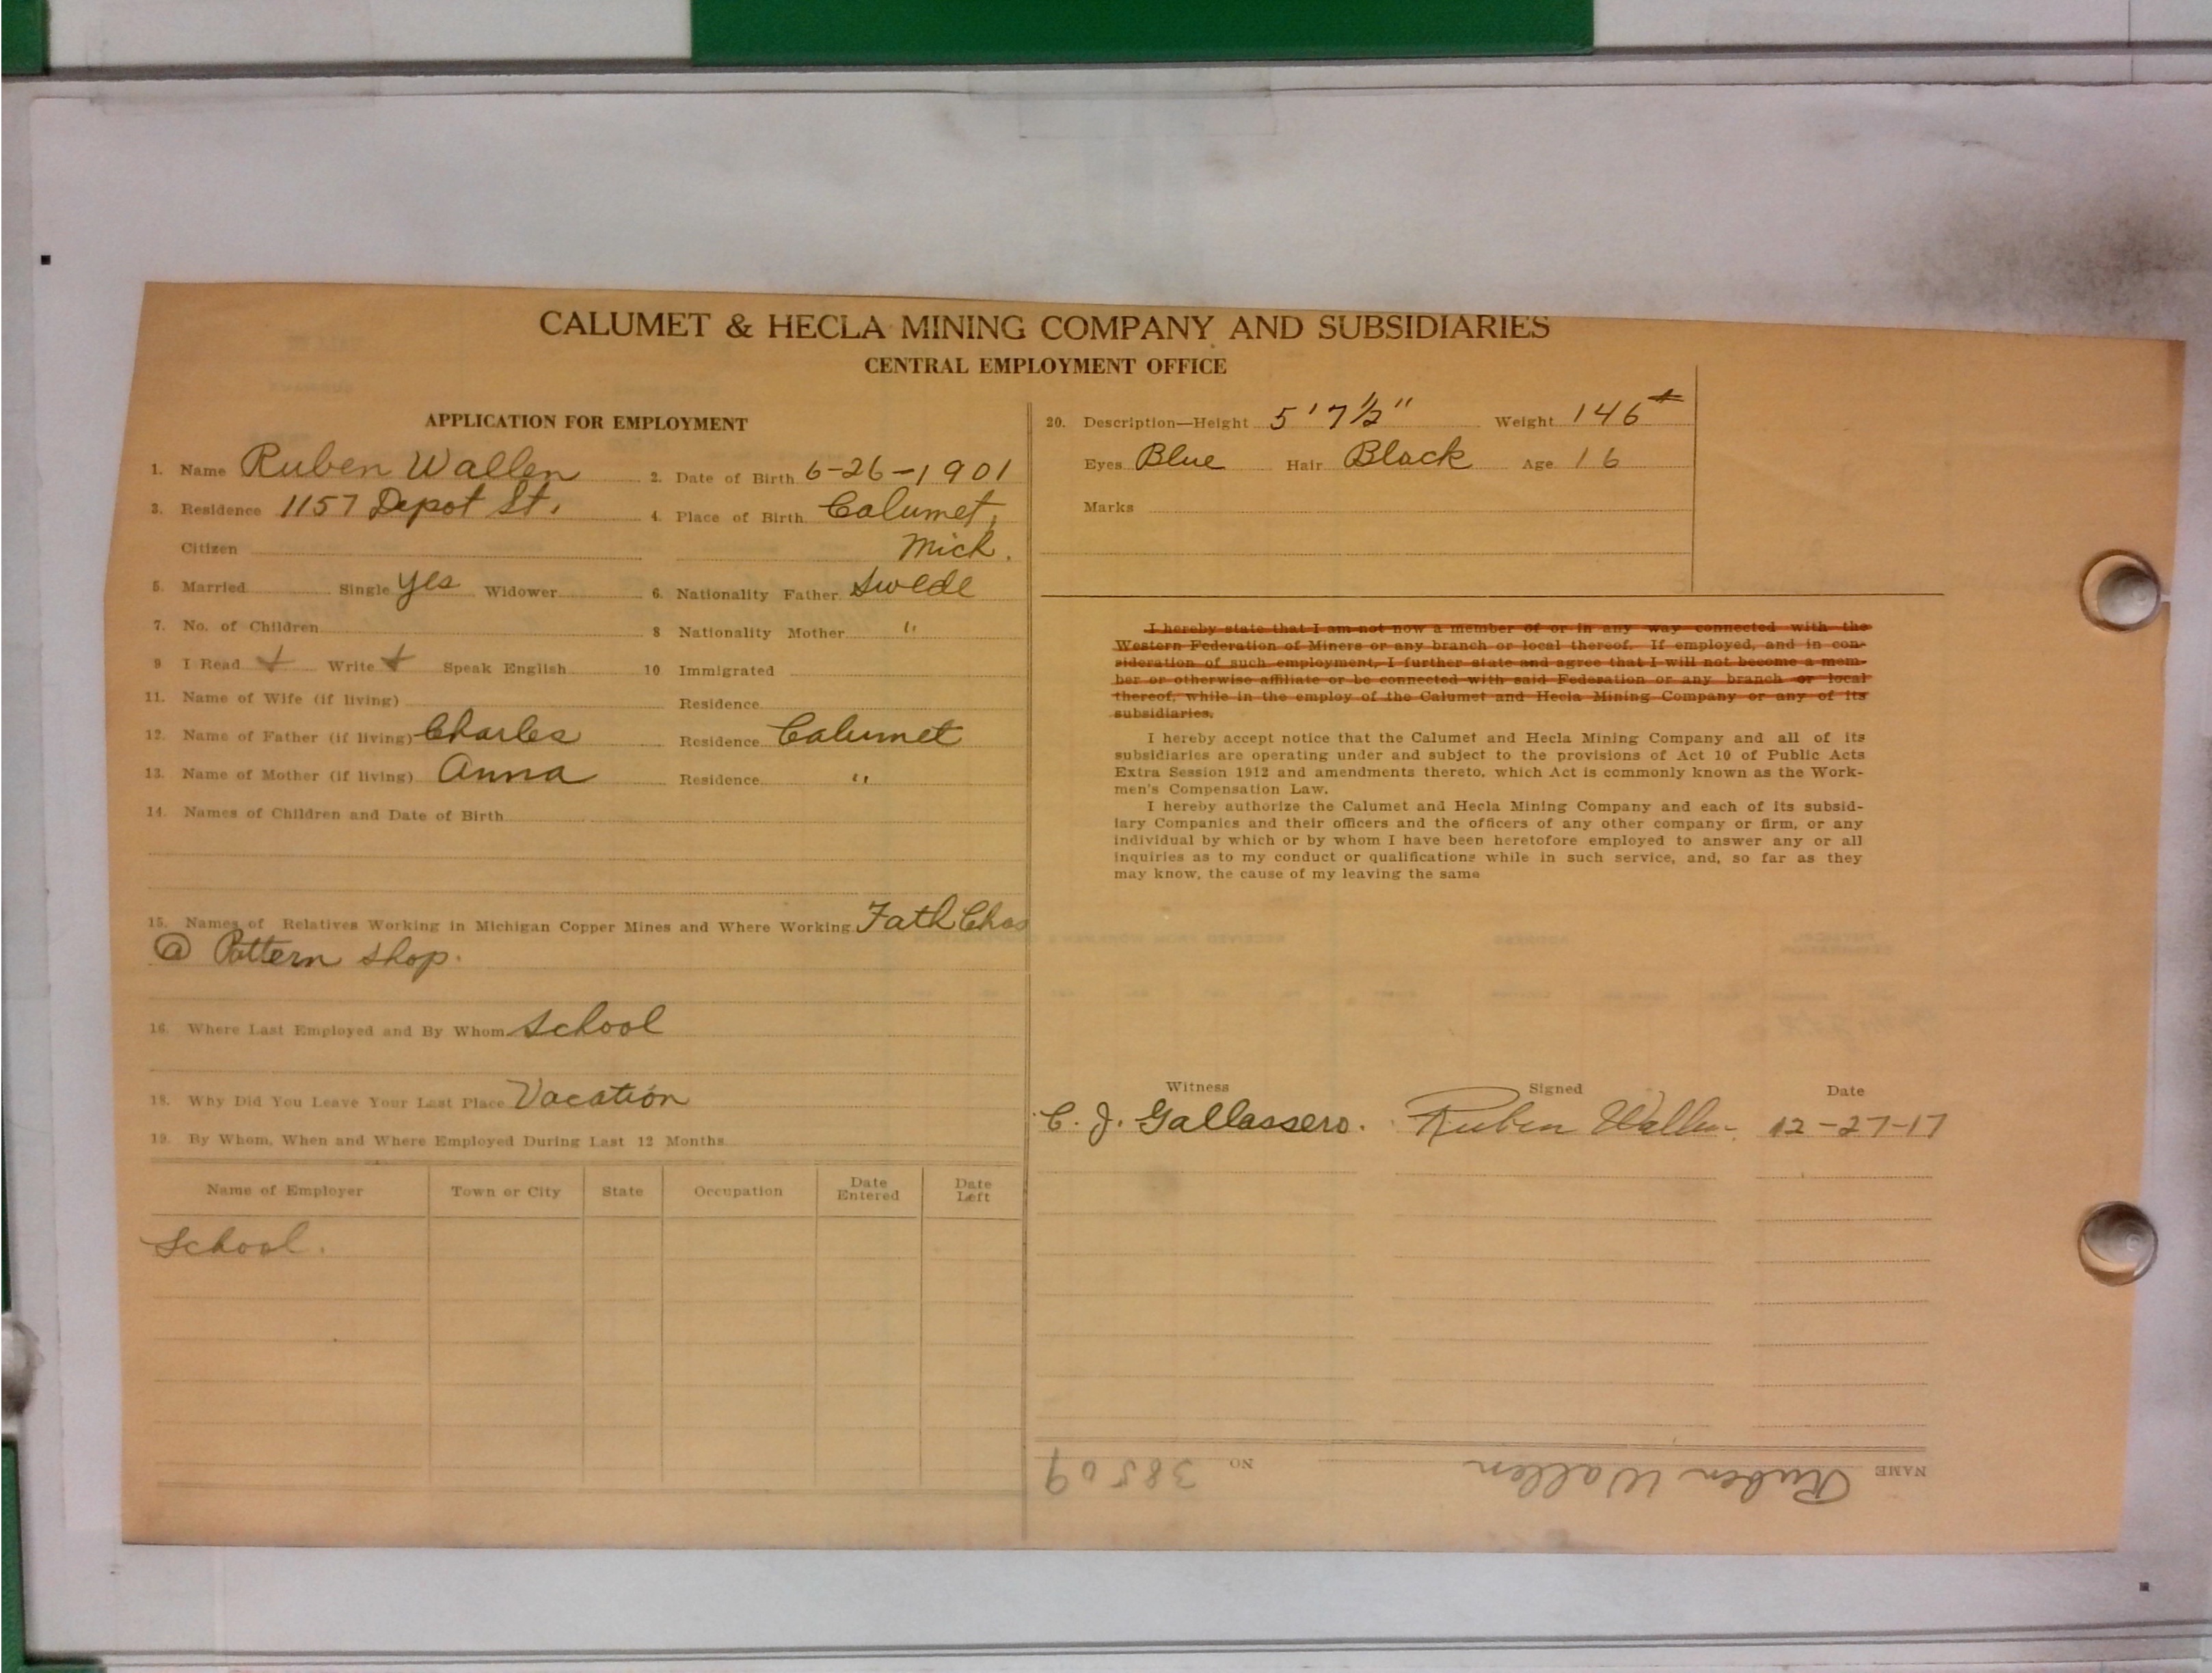 CALUMET & HECLA MINING COMPANY AND SUBSIDIARIES
CENTRAL EMPLOYMENT OFFICE
APPLICATION FOR EMPLOYMENT
1. Name Ruben Wallen 2. Date of Birth 6-26-1901
3. Residence 1157 Depot St. 4. Place of Birth Calumet,
Citizen Mich.
5. Married Single yes Widower 6. Nationality Father Swede
7. No. of Children 8 Nationality Mother "
9. I Read + Write + Speak English 10 Immigrated
11. Name of Wife (if living) Residence
12. Name of Father (if living) Charles Residence Calumet
13. Name of Mother (if living) Anna Residence "
14. Names of Children and Date of Birth
15. Names of Relatives Working in Michigan Copper Mines and Where Working Fath Chas
@ Pattern shop.
16. Where Last Employed and By Whom School
18. Why Did You Leave Your Last Place Vacation
19. By Whom, When and Where Employed During Last 12 Months
Name of Employer Town or City State Occupation Date Entered Date Left
School.
20. Description—Height 5'7½" Weight 146#
Eyes Blue Hair Black Age 16
Marks
I hereby state that I am not now a member of or in any way connected with the
Western Federation of Miners or any branch or local thereof. If employed, and in con-
sideration of such employment, I further state and agree that I will not become a mem-
ber or otherwise affiliate or be connected with said Federation or any branch or local
thereof, while in the employ of the Calumet and Hecla Mining Company or any of its
subsidiaries.
I hereby accept notice that the Calumet and Hecla Mining Company and all of its
subsidiaries are operating under and subject to the provisions of Act 10 of Public Acts
Extra Session 1912 and amendments thereto, which Act is commonly known as the Work-
men's Compensation Law.
I hereby authorize the Calumet and Hecla Mining Company and each of its subsid-
iary Companies and their officers and the officers of any other company or firm, or any
individual by which or by whom I have been heretofore employed to answer any or all
inquiries as to my conduct or qualifications while in such service, and, so far as they
may know, the cause of my leaving the same
Witness Signed Date
C. J. Gallassero. Ruben Wallen 12-27-17
NAME Ruben Wallen NO 38509